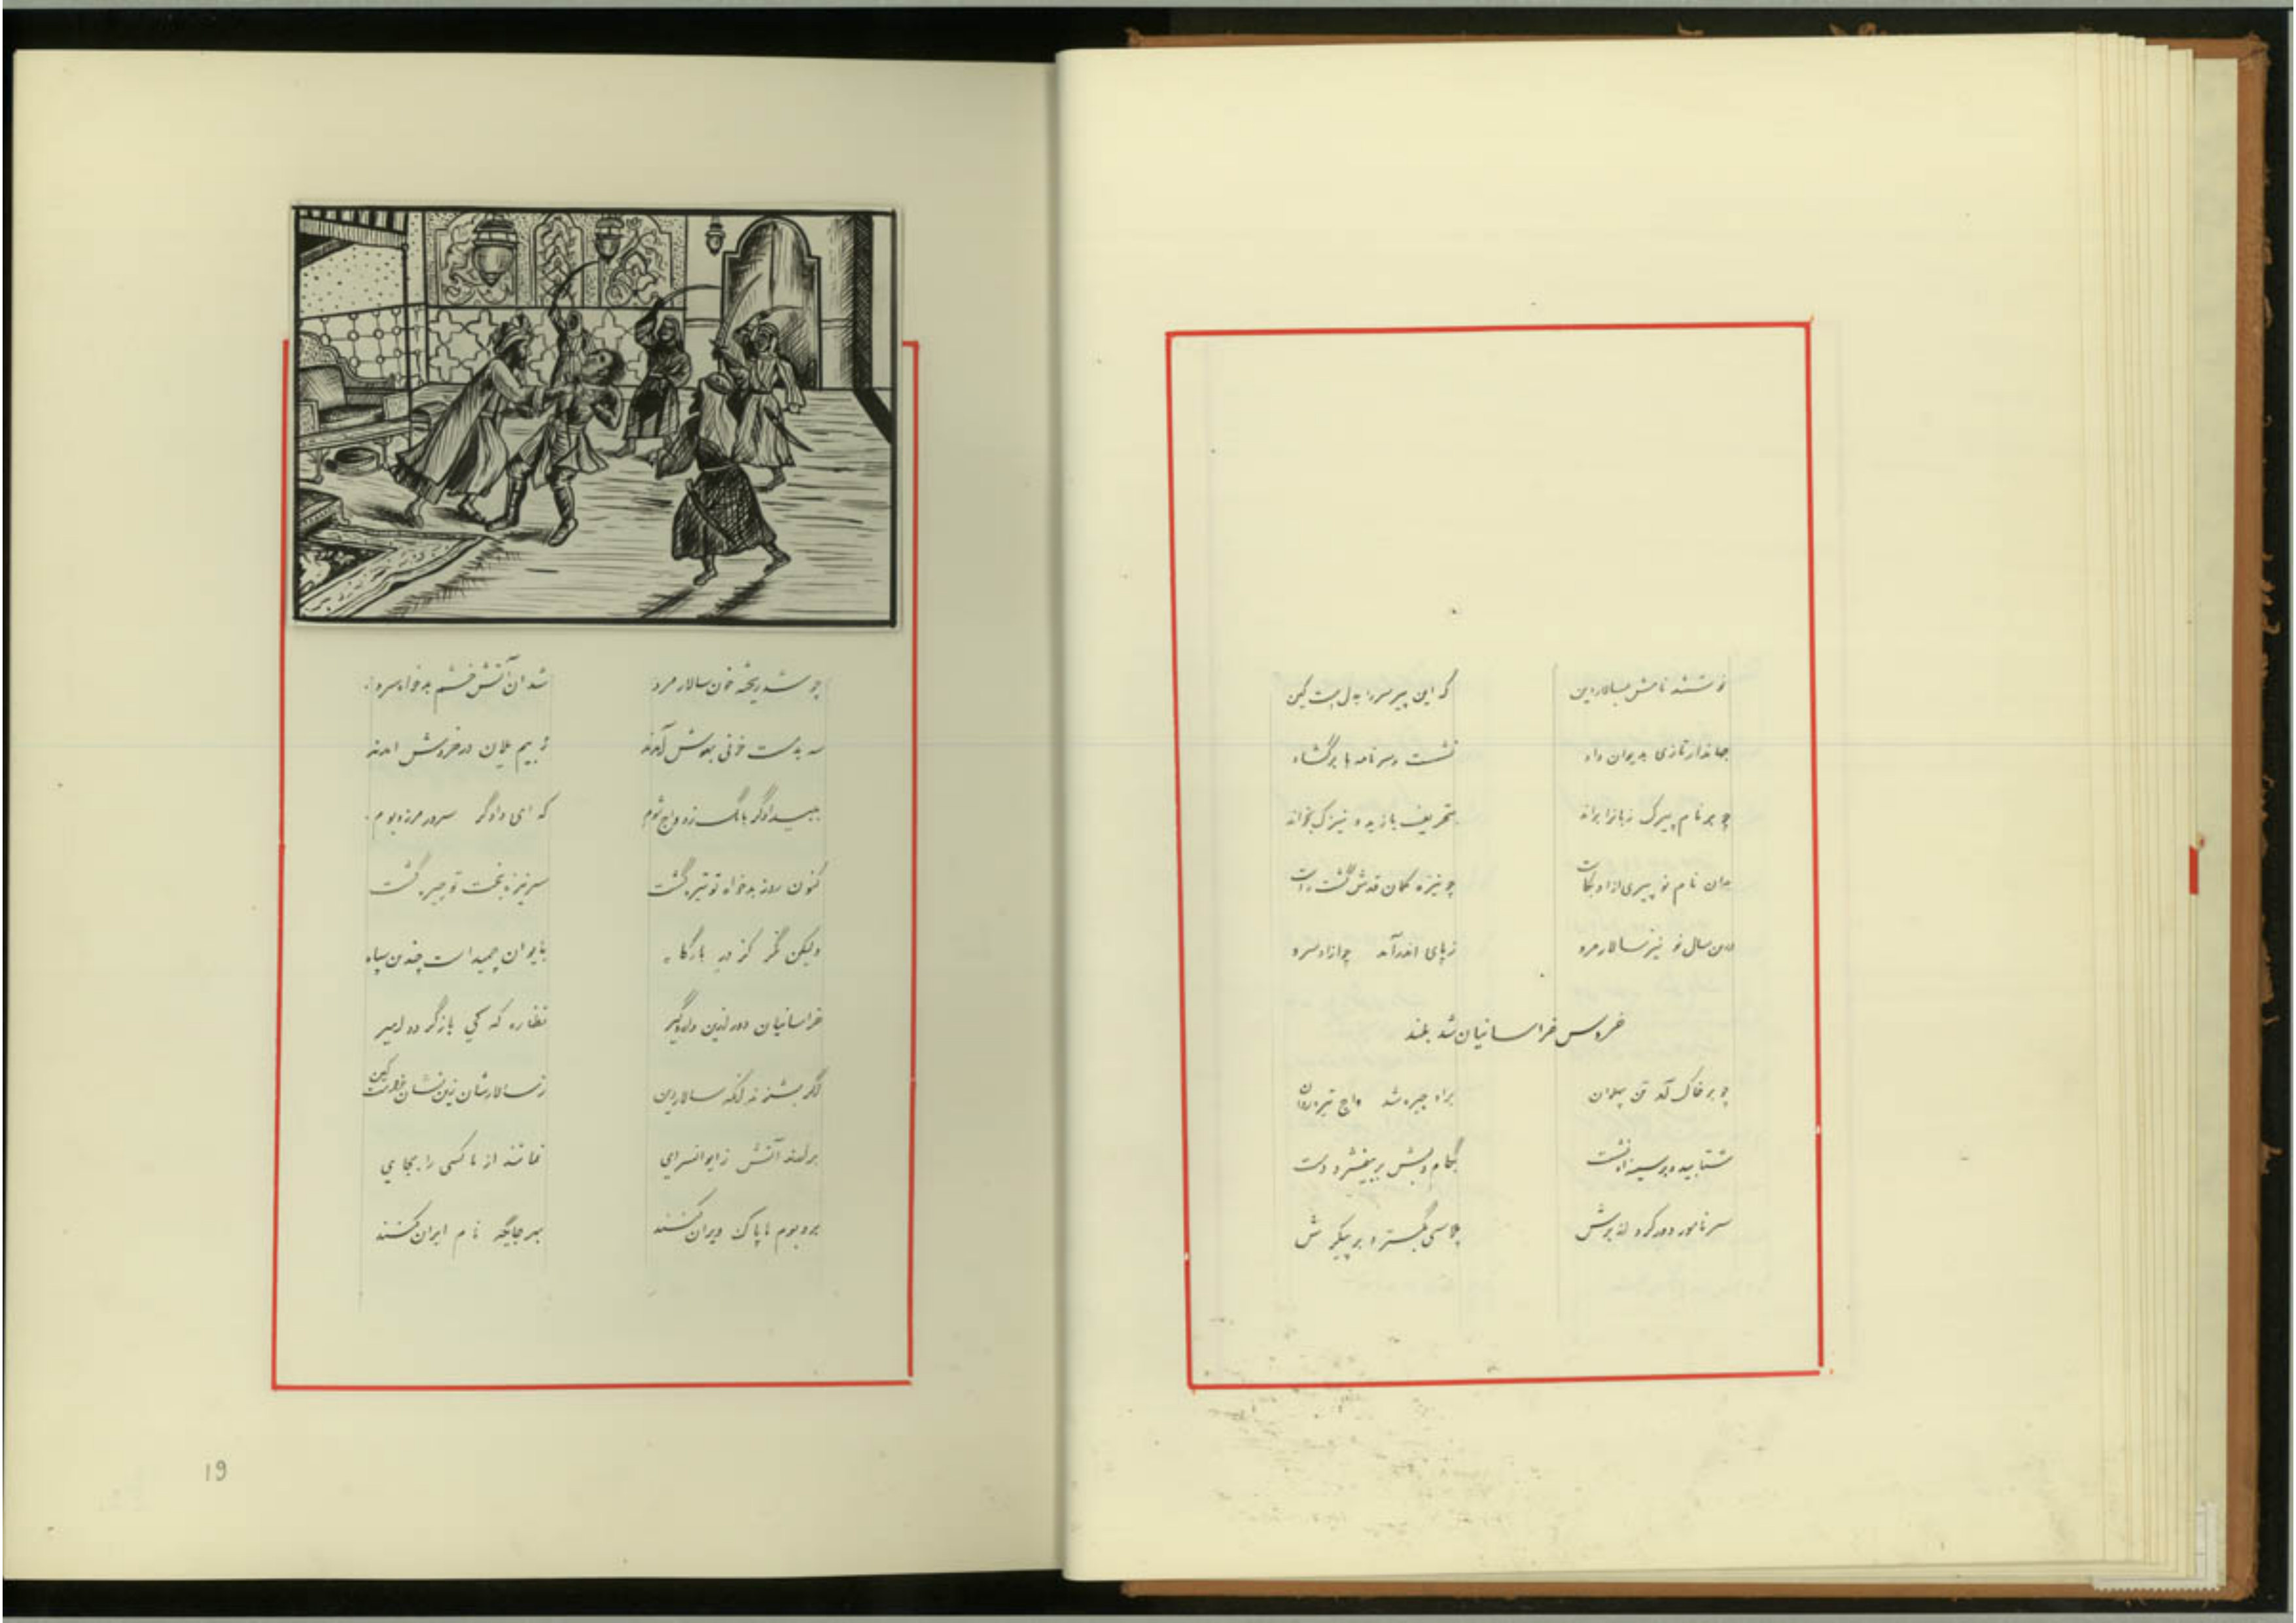 نوشتند نامش بسالار دین که این پیر سر را به دل هست کین
جهاندار تازی به دیوان داد نشست و سر نامه ها برگشاد
چو بر نام پیرک زبانرا براند بتحریف بازید و نیزک بخواند
بدان نام نو پیری از او بکاست چو نیزه کمان قدش گشت راست
در آن سال نو نیز سالار مرو ز پای اندر آمد چو آزاد سرو
خروس خراسانیان شد بلند
چو بر خاک آمد تن پهلوان براو چیره شد واج تیره روان
شتابید و بر سینه او نشست بکام دلش بر بیفشرد دست
سر نامور دور کرد از برش پلاسی بگسترد بر پیکرش
چو شد ریخته خون سالار مرد شد آن آتش خشم بدخواه سرد
سه بدمست خونی بهوش آمدند ز بیم یلان در خروش آمدند
به بیدادگر بانگ زد واج شوم که ای دادگر سرور مرز و بوم
کنون روز بدخواه تو تیره گشت سر نیزه بخت تو چیره گشت
ولیکن نگر کز در بارگاه بایوان چمیده است چندین سپاه
خراسانیان دور ازین دار و گیر نظاره که کی بازگردد امیر
اگر بشنوند آنکه سالار دین ز سالارشان زین نشان خواست کین
برآرند آتش ز ایوانسرای نمانند از ما کسی را بجای
بر و بوم ما پاک ویران کنند بهر جایگه نام ایران کنند
19